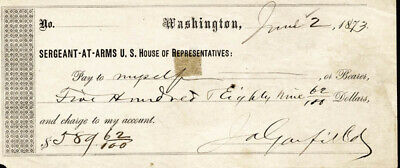 No. Washington, June 2, 1873
SERGEANT-AT-ARMS U. S. HOUSE OF REPRESENTATIVES:
Pay to myself, or Bearer,
Five Hundred & Eighty Nine 62/100 Dollars,
and charge to my account.
$589 62/100 J A Garfield